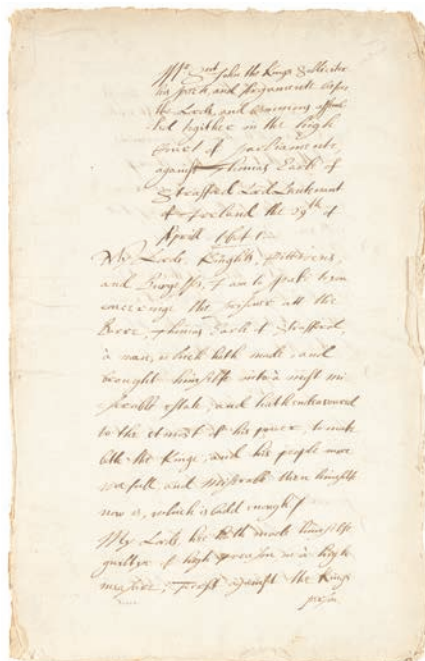 Mr Snt John the Kings Solliciter
his speech and Argumente before
the Lords and Commons assem
bled togither in the high
Court of parliamente,
against Thomas Earle of
Strafford Lord Lieutenant
of Ireland the 29th of
Aprill 1641
My Lords, Knights, Cittizens,
and Burgesses, I am to speake to you
concerninge the prisoner att the
Barre, Thomas Earle of Strafford,
a man, which hath made and
brought himselfe into a most mi
serable estate, and hath endeavoured
to the utmost of his power, to make
both the Kinge, and his people more
wofull and miserable then himselfe
now is, which is badd enough
My Lords hee hath made himselfe
guiltye of high treason in a high
measure; First against the Kings